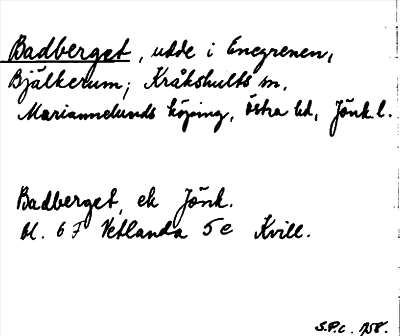 Badberget, udde i Enegrenen,
Bjälkerum; Kråkshults sn,
Mariannelunds köping, Östra hd, Jönk. l.
Badberget, ek Jönk.
bl. 6 F Vetlanda 5 e Kvill.
S.P.c. 1958.